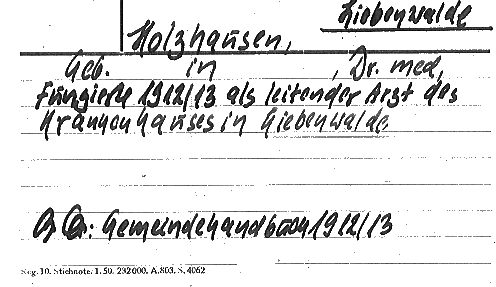 Liebenwalde
Holzhausen,
Geb. in , Dr. med,
Fungierte 1912/13 als leitender Arzt des
Krankenhauses in Liebenwalde
Gemeindehandbuch 1912/13
Reg. 10. Stichnote. 1. 50. 232000. A.803. S. 4062